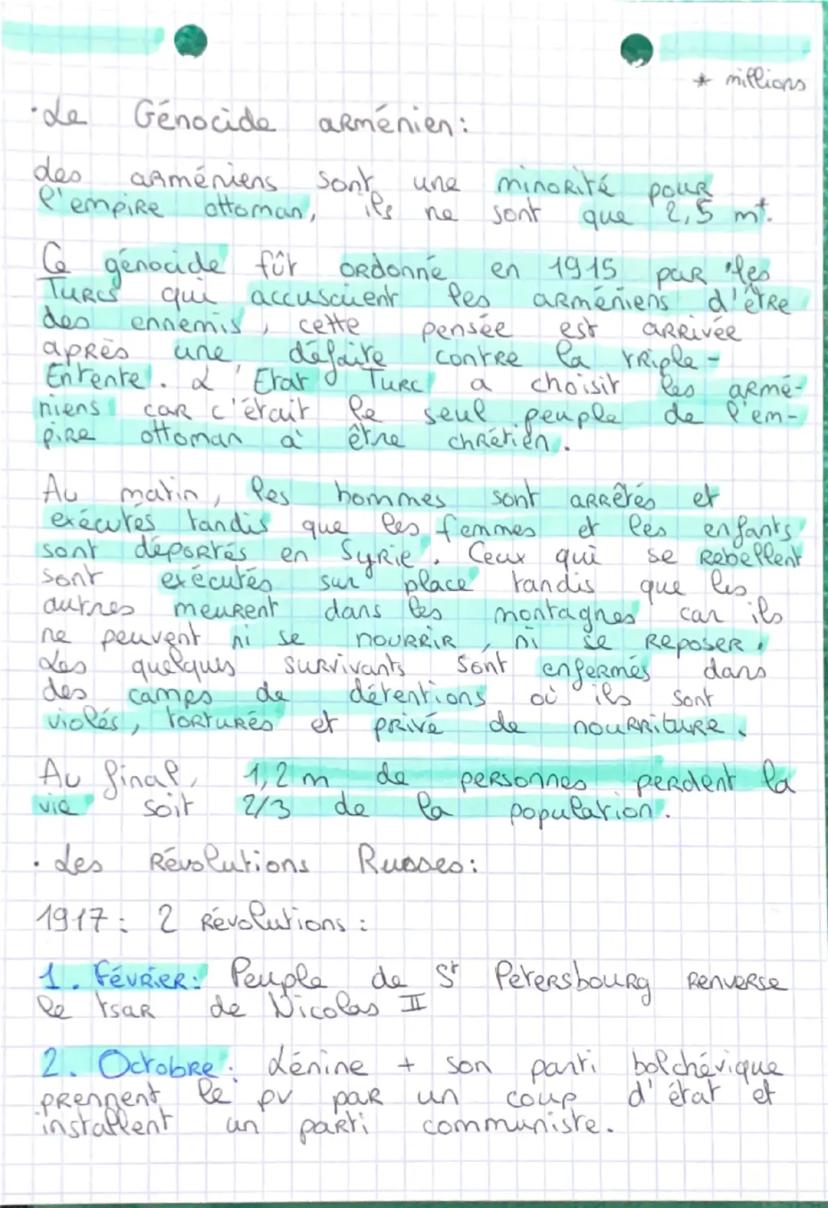 * millions
• Le Génocide arménien:
des arméniens sont une minorité pour
l'empire ottoman, ils ne sont que 2,5 m*.
Ce génocide fût ordonné en 1915 par les
Turcs qui accusaient les arméniens d'être
des ennemis, cette pensée est arrivée
après une défaite contre la triple-
Entente. L'Etat Turc a choisit les armé-
niens car c'était le seul peuple de l'em-
pire ottoman à être chrétien.
Au matin, les hommes sont arrêtés et
exécutés tandis que les femmes et les enfants
sont déportés en Syrie. Ceux qui se rebellent
sont exécutés sur place tandis que les
autres meurent dans les montagnes car ils
ne peuvent ni se nourrir, ni se reposer.
Les quelques survivants sont enfermés dans
des camps de détentions où ils sont
violés, torturés et privé de nourriture.
Au final, 1,2 m de personnes perdent la
vie soit 2/3 de la population.
• Les Révolutions Russes:
1917: 2 Révolutions:
1. Février: Peuple de St Pétersbourg renverse
le tsar de Nicolas II
2. Octobre: Lénine + son parti bolchévique
prennent le pv par un coup d'état et
installent un parti communiste.